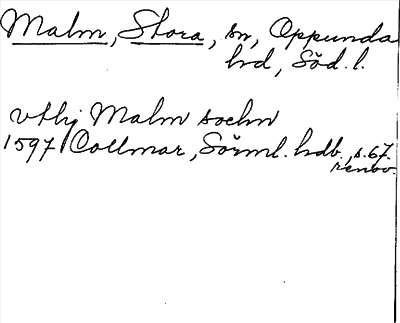 Malm, Stora, sn, Oppunda
hd, Söd. l.
vthj Malm sochn
1597 Collmar, Sörml. hdb., s. 67.
renov.